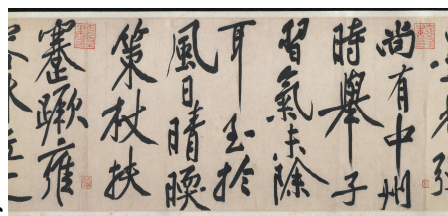 尚有中州
時舉子
習氣未除
耳至於
風日晴暖
策杖扶
蹇蹶雍